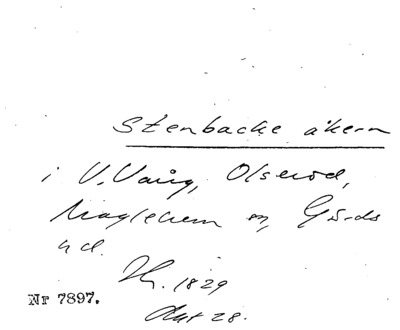 Stenbacke åkern
i V. Vång, Olseröd,
Maglehem sn, Gärds
hd.
1829
Akt 28.
Nr 7897.